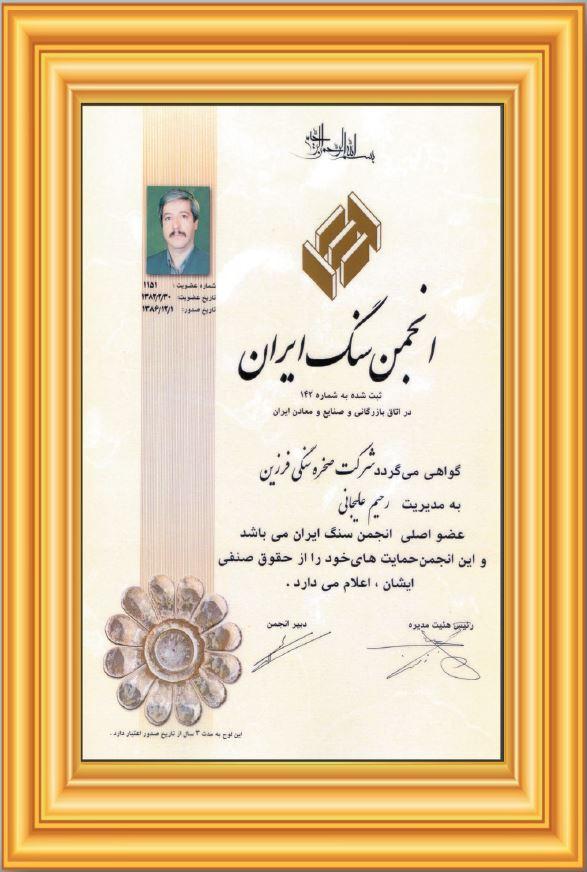 بسم الله الرحمن الرحیم
شماره عضویت: ۱۱۵۱
تاریخ عضویت: ۱۳۸۲/۲/۳۰
تاریخ صدور: ۱۳۸۶/۱۲/۱
انجمن سنگ ایران
ثبت شده به شماره ۱۴۲
در اتاق بازرگانی و صنایع و معادن ایران
گواهی می‌گردد شرکت صخره سنگی فرزین
به مدیریت رحیم علیجانی
عضو اصلی انجمن سنگ ایران می باشد
و این انجمن حمایت های خود را از حقوق صنفی
ایشان ، اعلام می دارد .
رئیس هئیت مدیره
دبیر انجمن
این لوح به مدت ۳ سال از تاریخ صدور اعتبار دارد .